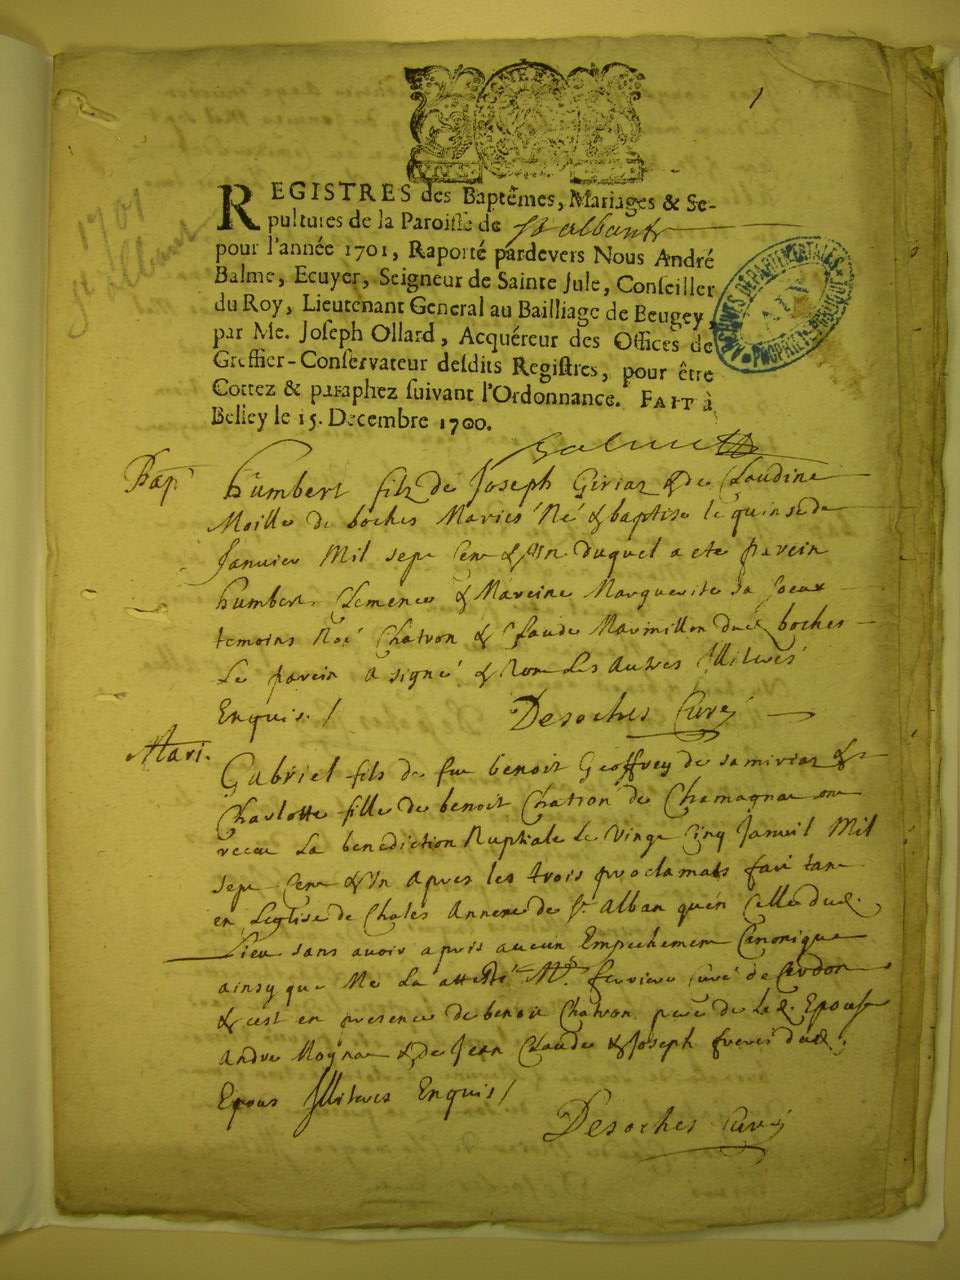 1
1701
St Albant
REGISTRES des Baptêmes, Mariages & Se-
pultures de la Paroisse de St albant
pour l'année 1701, Raporté pardevers Nous André
Balme, Ecuyer, Seigneur de Sainte Jule, Conseiller
du Roy, Lieutenant General au Bailliage de Beugey,
par Me. Joseph Ollard, Acquéreur des Offices de
Greffier-Conservateur desdits Registres, pour être
Cottez & paraphez suivant l'Ordonnance. FAIT à
Belley le 15. Decembre 1700.
ARCHIVES DÉPARTEMENTALES
AIN
PROPRIÉTÉ PUBLIQUE
Balme
Bap.
humbert fils de Joseph Giriaz & de Claudine
Moille de boches Mariés Né & baptise le quinse de
Janvier Mil sept Cent & Un duquel a ete parein
humbert Clemence & Mareine Marguerite sa soeur
temoins Noé Chatron & Claude Marmillon dud. boches
Le parein a signé & Non Les Autres Illiterés
Enquis. /
Desoches Curé
Mari.
Gabriel fils de fue benoit Geoffrey de samiriaz &
Charlotte fille de benoit Chatron de Chamagnat ont
receu La benediction Nuptiale Le Vingt Cinq Janvil Mil
sept Cent & Un Apres les trois proclamats fait tant
en L'eglise de Chales Annexe de St. Alban qu'en Celle dud.
Lieu sans avoir apris aucun Empechement Canonique
ainsy que Me La attesté Mr. ferriere Curé de Cerdon
& cest en presence de benoit Chatron pere de Lad. Epouse
Andre Moynat & de Jean Claude & Joseph freres dud.
Epoux Illiteres Enquis /
Desoches Curé